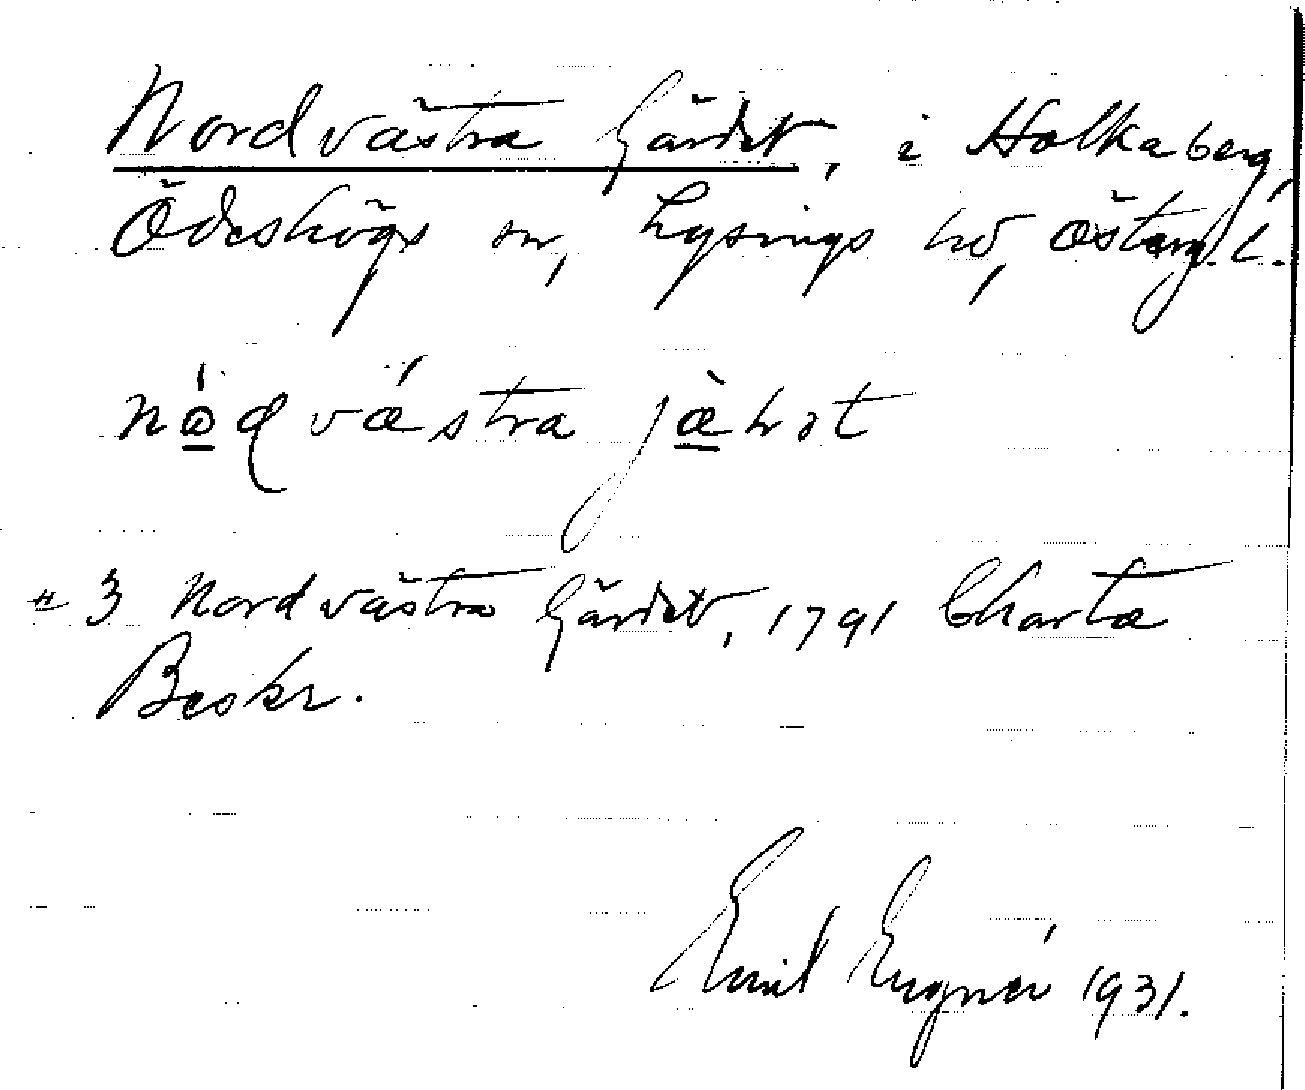 Nordvästra Gärdet, i Holkaberg,
Ödeshögs sn, Lysings hd, Österg. l.
nódvástra jàhot
# 3 Nordvästra Gärdet, 1791 Charta
Beskr.
Emil Eugnér 1931.